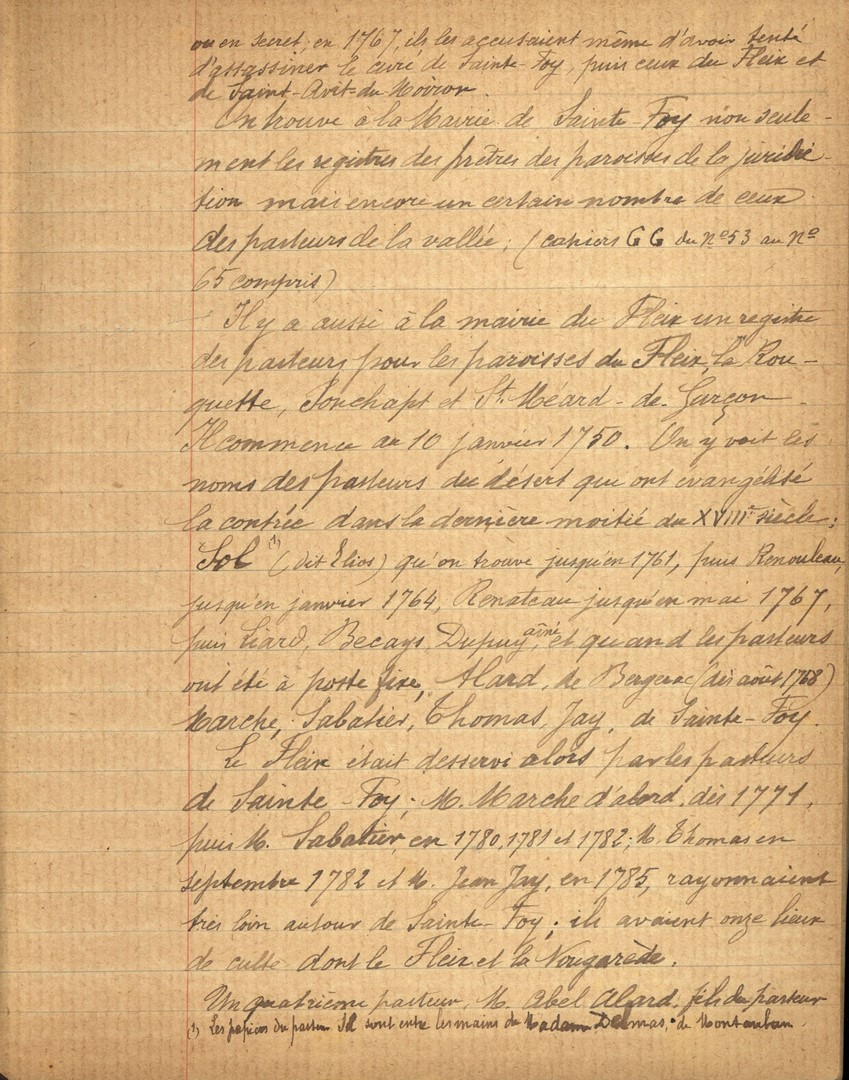 ou en secret; en 1767, ils les accusaient même d'avoir tenté
d'assassiner le curé de Sainte-Foy, puis ceux du Fleix et
de Saint-Avit-du-Moiron.
On trouve à la Mairie de Sainte-Foy non seule-
ment les registres des prêtres des paroisses de la juridic-
tion mais encore un certain nombre de ceux
des pasteurs de la vallée; (cahiers GG du Nº 53 au Nº
65 compris)
Il y a aussi à la mairie du Fleix un registre
des pasteurs pour les paroisses du Fleix, la Rou-
quette, Ponchapt et St. Méard-de-Gurçon.
Il commence au 10 janvier 1750. On y voit les
noms des pasteurs du désert qui ont évangélisé
la contrée dans la dernière moitié du XVIIIe siècle:
Sol (1) (dit Elios) qu'on trouve jusqu'en 1761, puis Renouleau,
jusqu'en janvier 1764, Renateau jusqu'en mai 1767,
puis Liard, Becays, Dupuy aîné, et quand les pasteurs
ont été à poste fixe, Alard, de Bergerac (dès août 1768)
Marche, Sabatier, Thomas, Jay, de Sainte-Foy.
Le Fleix était desservi alors par les pasteurs
de Sainte-Foy; M. Marche d'abord, dès 1771,
puis M. Sabatier, en 1780, 1781 et 1782; M. Thomas en
septembre 1782 et M. Jean Jay, en 1785, rayonnaient
très loin autour de Sainte-Foy; ils avaient onze lieux
de culte dont le Fleix et la Nougarède.
Un quatrième pasteur, M. Abel Alard, fils du pasteur
(1) Les papiers du pasteur Sol sont entre les mains de Madame Delmas, de Montauban.